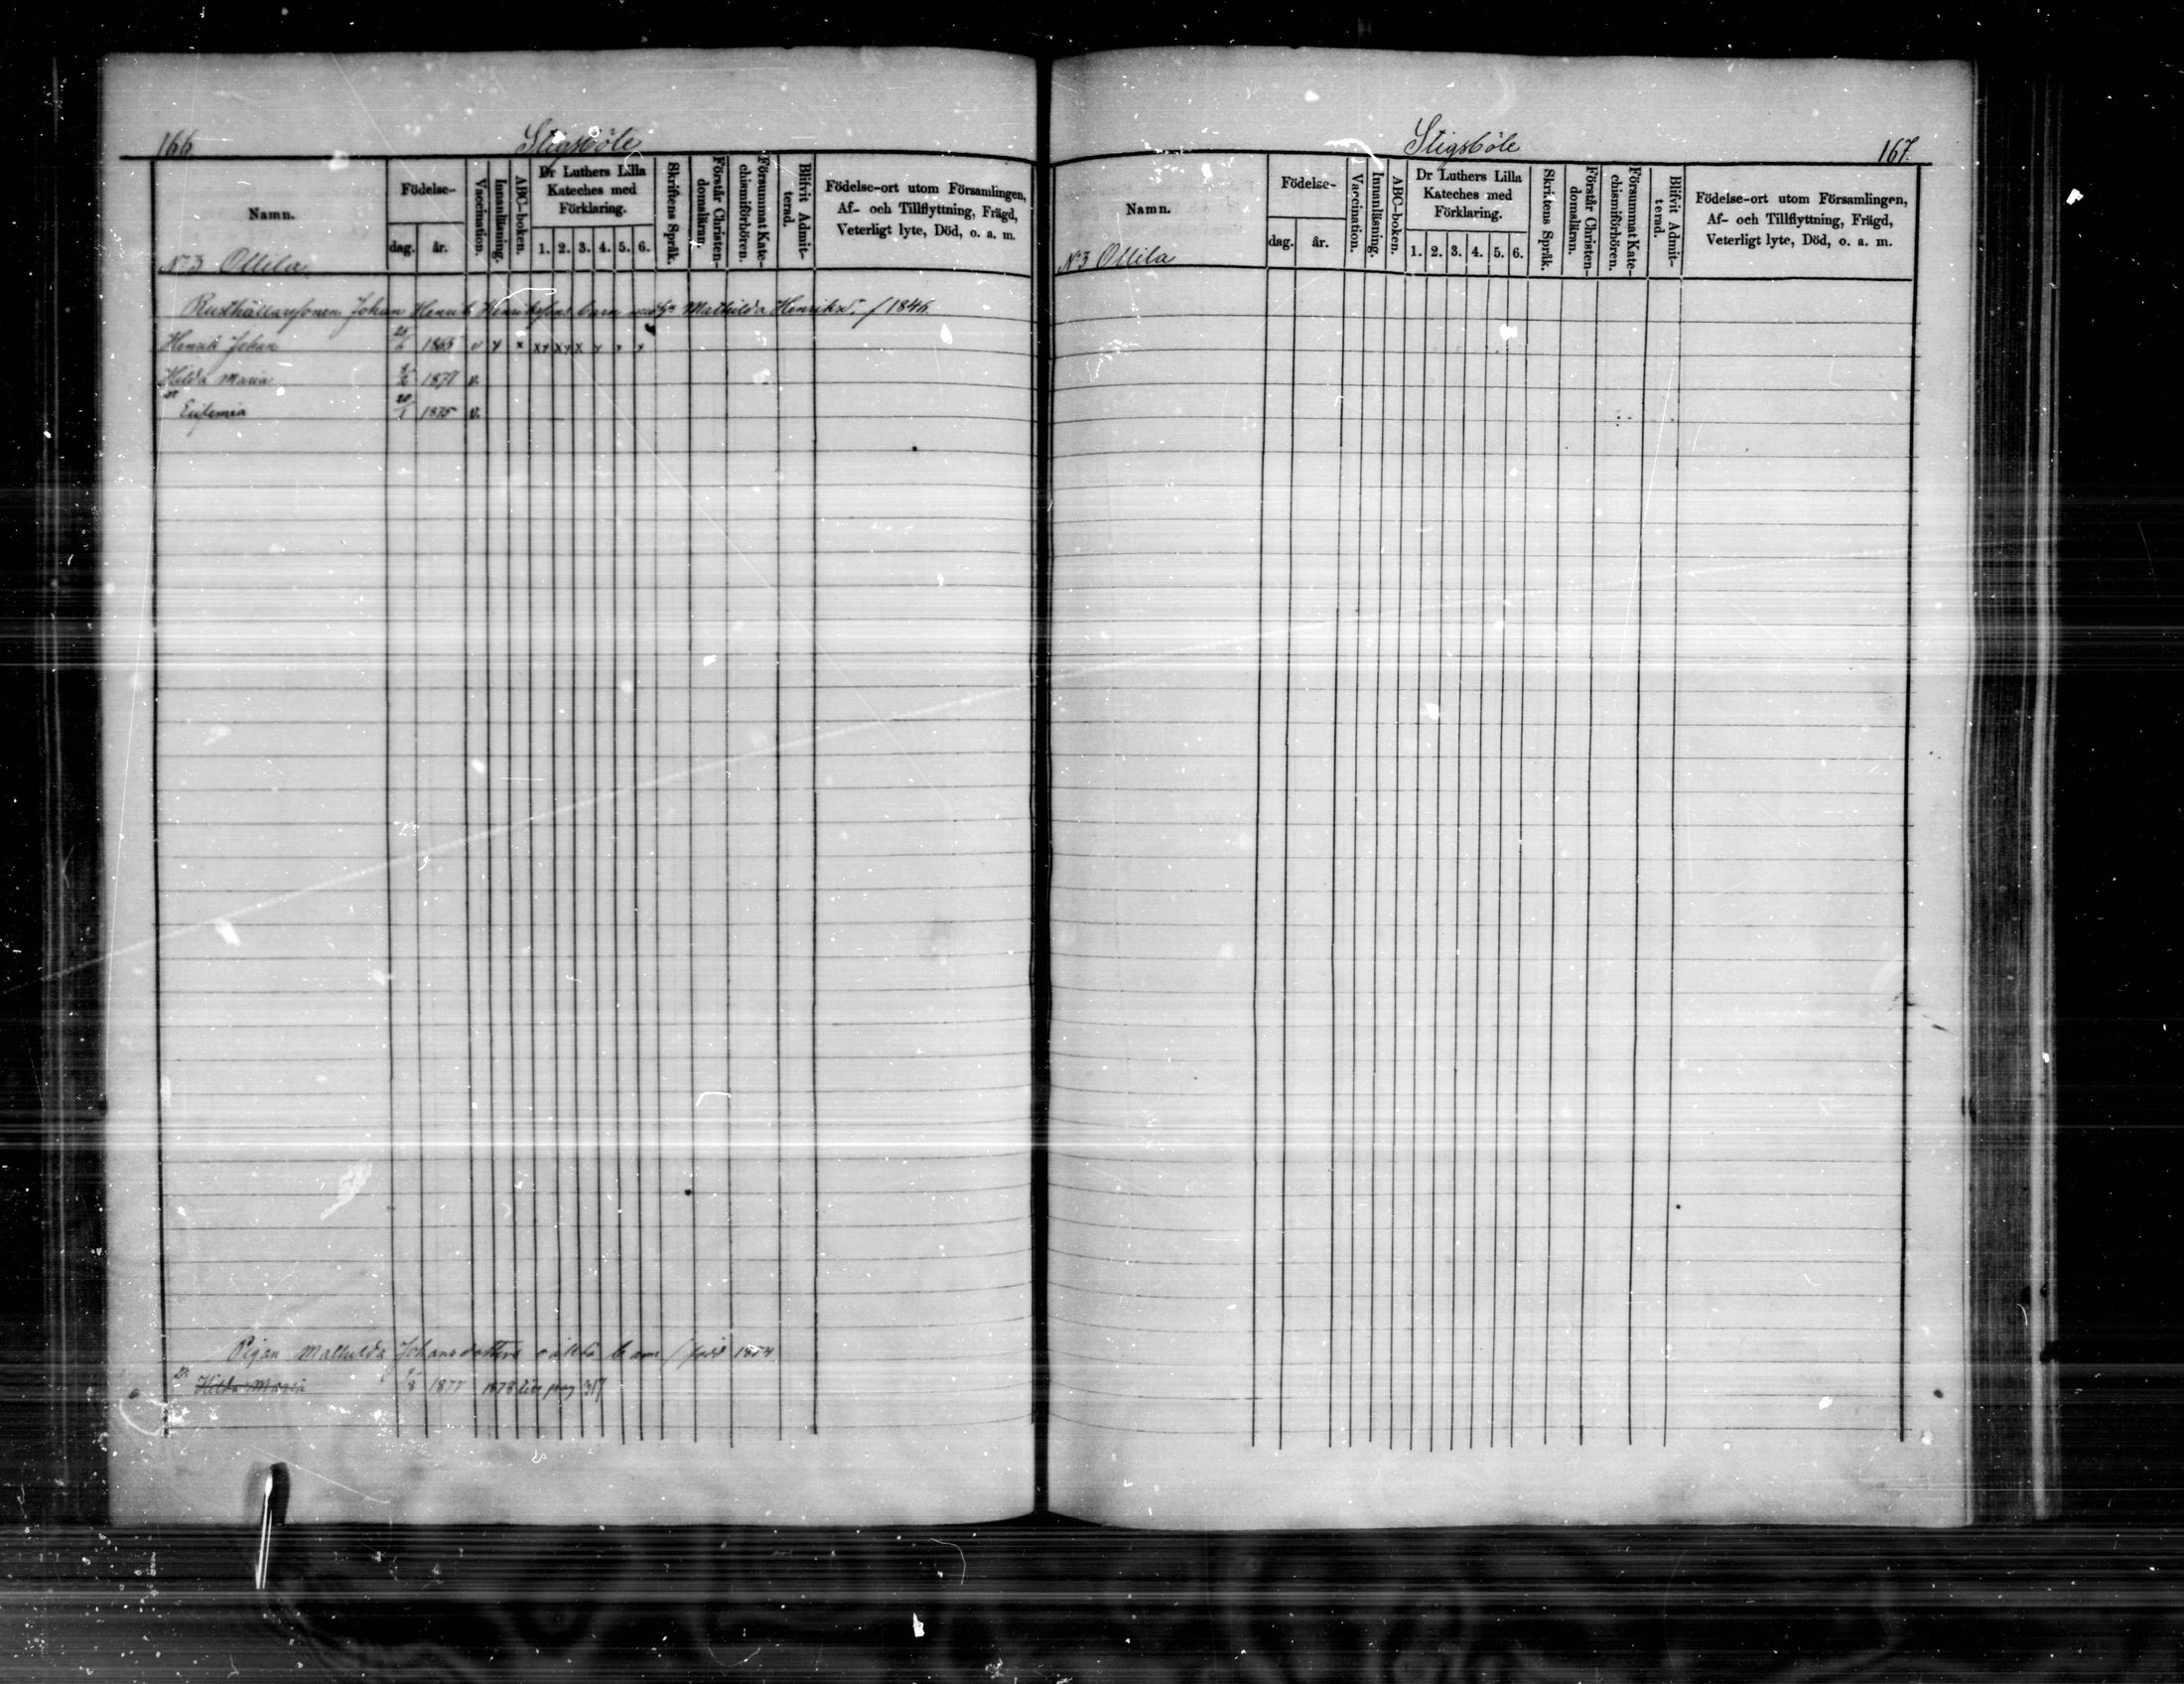 166
Stigsböle
Namn.
Födelse-
dag.
år.
Vaccination.
Innanläsning.
ABC-boken.
Dr Luthers Lilla
Kateches med
Förklaring.
1. 2. 3. 4. 5. 6.
Skriftens Språk.
Förstår Christen-
domsläran.
Försummat Kate-
chismiförhören.
Blifvit Admit-
terad.
Födelse-ort utom Församlingen,
Af- och Tillflyttning, Frägd,
Veterligt lyte, Död, o. a. m.
No 3 Ollila
Rusthållaresonen Johan Henrik Henrikssons barn Mathilda Henriksd. f 1846
Henrik Johan 1868 v x x x x x x x x x x
Hilda Maria 1871 v.
Dr Eufemia 20/1 1875 v.
Pigan Mathilda Johansdotters oäkta barn född 1854
Dr Hilda Maria 1877 1878 pag 317
Stigsböle
167.
Namn.
Födelse-
dag.
år.
Vaccination.
Innanläsning.
ABC-boken.
Dr Luthers Lilla
Kateches med
Förklaring.
1. 2. 3. 4. 5. 6.
Skriftens Språk.
Förstår Christen-
domsläran.
Försummat Kate-
chismiförhören.
Blifvit Admit-
terad.
Födelse-ort utom Församlingen,
Af- och Tillflyttning, Frägd,
Veterligt lyte, Död, o. a. m.
No 3 Ollila